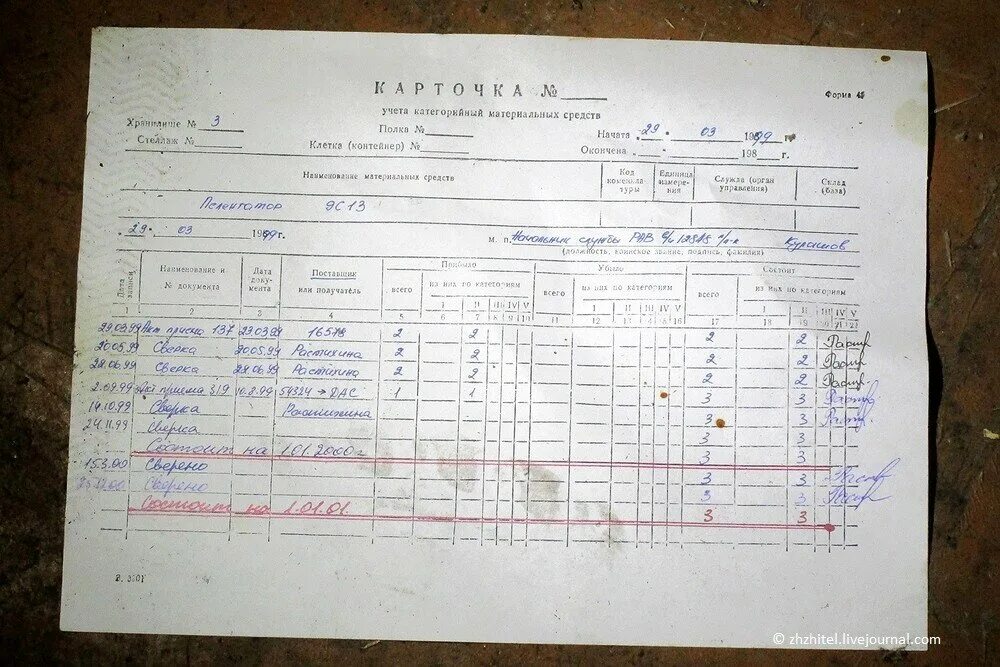 КАРТОЧКА № Форма 45
учета категорийный материальных средств
Хранилище № 3 Полка № Начата 29. 03 1999 г.
Стеллаж № Клетка (контейнер) № Окончена 198 г.
Наименование материальных средств Код номенклатуры Единица измерения Служба (орган управления) Склад (база)
Пеленгатор 9С13
29. 03 1999г. м. п. Начальник службы РАВ в/ч п/п-к
(должность, воинское звание, подпись, фамилия)
Дата записи Наименование и № документа Дата документа Поставщик или получатель Прибыло Убыло Состоит
всего из них по категориям всего из них по категориям всего из них по категориям
I II III IV V I II III IV V I II III IV V
1 2 3 4 5 6 7 8 9 10 11 12 13 14 15 16 17 18 19 20 21 22
29.03.99 Акт приема 137 29.03.99 16578 2 2 2 2
20.05.99 Сверка 20.05.99 Растихина 2 2 2 2
28.06.99 Сверка 28.06.99 Растихина 2 2 2 2
2.09.99 Акт приема 319 54324 → ДАС 1 1 3 3
14.10.99 Сверка Растихина 3 3
24.11.99 Сверка 3 3
Состоит на 1.01.2000г 3 3
15.3.00 Сверено 3 3
Сверено 3 3
Состоит на 1.01.01. 3 3
© zhzhitel.livejournal.com